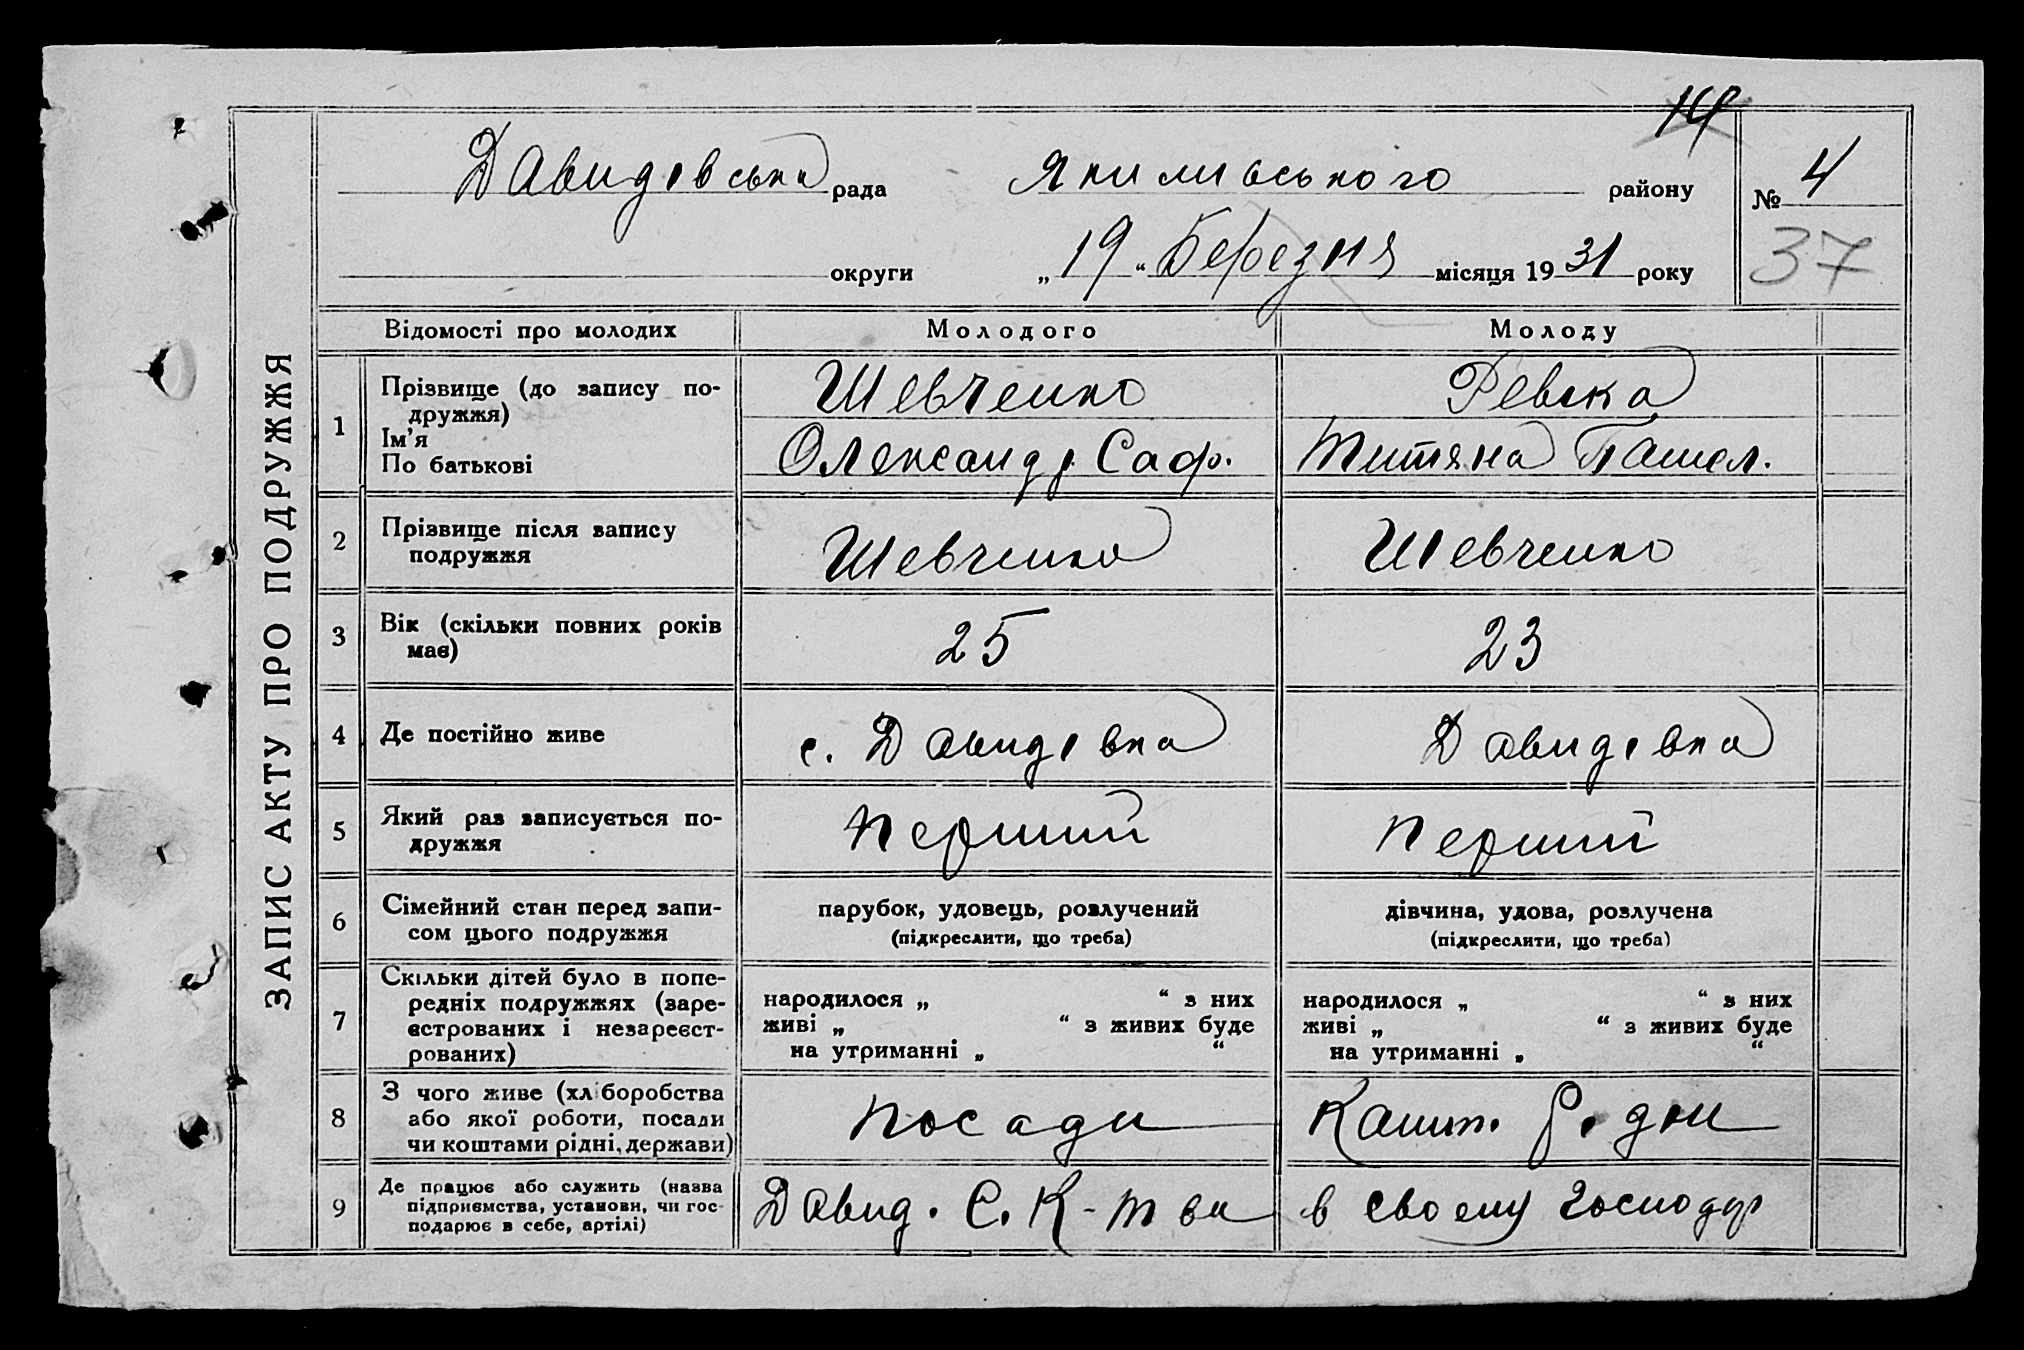 14
Давидівська рада Якимивського району № 4
округи „ 19 “ Березня місяця 19 31 року 37
ЗАПИС АКТУ ПРО ПОДРУЖЖЯ
Відомості про молодих Молодого Молоду
1 Прізвище (до запису по-
дружжя)
Ім’я
По батькові
Шевченко
Олександр Саф.
Ревека
Титяна Памел.
2 Прізвище після запису
подружжя
Шевченко Шевченко
3 Вік (скільки повних років
має)
25 23
4 Де постійно живе с. Давидівка Давидівка
5 Який раз записується по-
дружжя
перший перший
6 Сімейний стан перед запи-
сом цього подружжя
парубок, удовець, розлучений
(підкреслити, що треба)
дівчина, удова, розлучена
(підкреслити, що треба)
7 Скільки дітей було в попе-
редніх подружжях (заре-
єстрованих і незареєст-
рованих)
народилося „ “ з них
живі „ “ з живих буде
на утриманні „ “
народилося „ “ з них
живі „ “ з живих буде
на утриманні „ “
8 З чого живе (хліборобства
або якої роботи, посади
чи коштами рідні, держави)
посади Кошт. рідни
9 Де працює або служить (назва
підприємства, установи, чи гос-
подарює в себе, артілі)
Давид. С. К-тва в своему господар